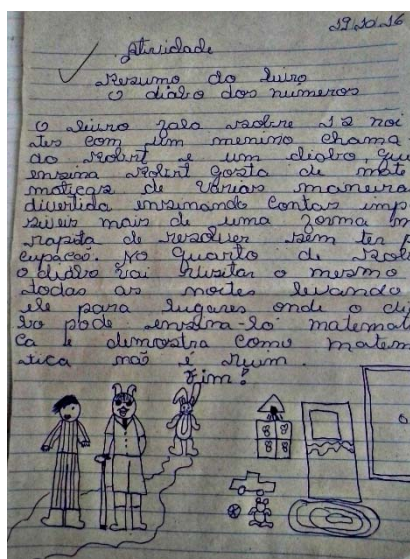 19.10.16
Atividade
Resumo do livro
O diabo dos numeros
O livro fala sobre 12 noi
tes com um menino chama
do Robert e um diabo, que
ensina Robert gosta de mate
maticas de várias maneira
divertida ensinando contas imp
siveis mais de uma forma m
rapita de resolver sem ter p
cupacão. No quarto de Rob
o diabo vai visitar o mesmo
todas as noites levando
ele para lugares onde o di
bo pode ensina-lo matemat
ca e demostra como matem
atica não é ruim.
Fim!